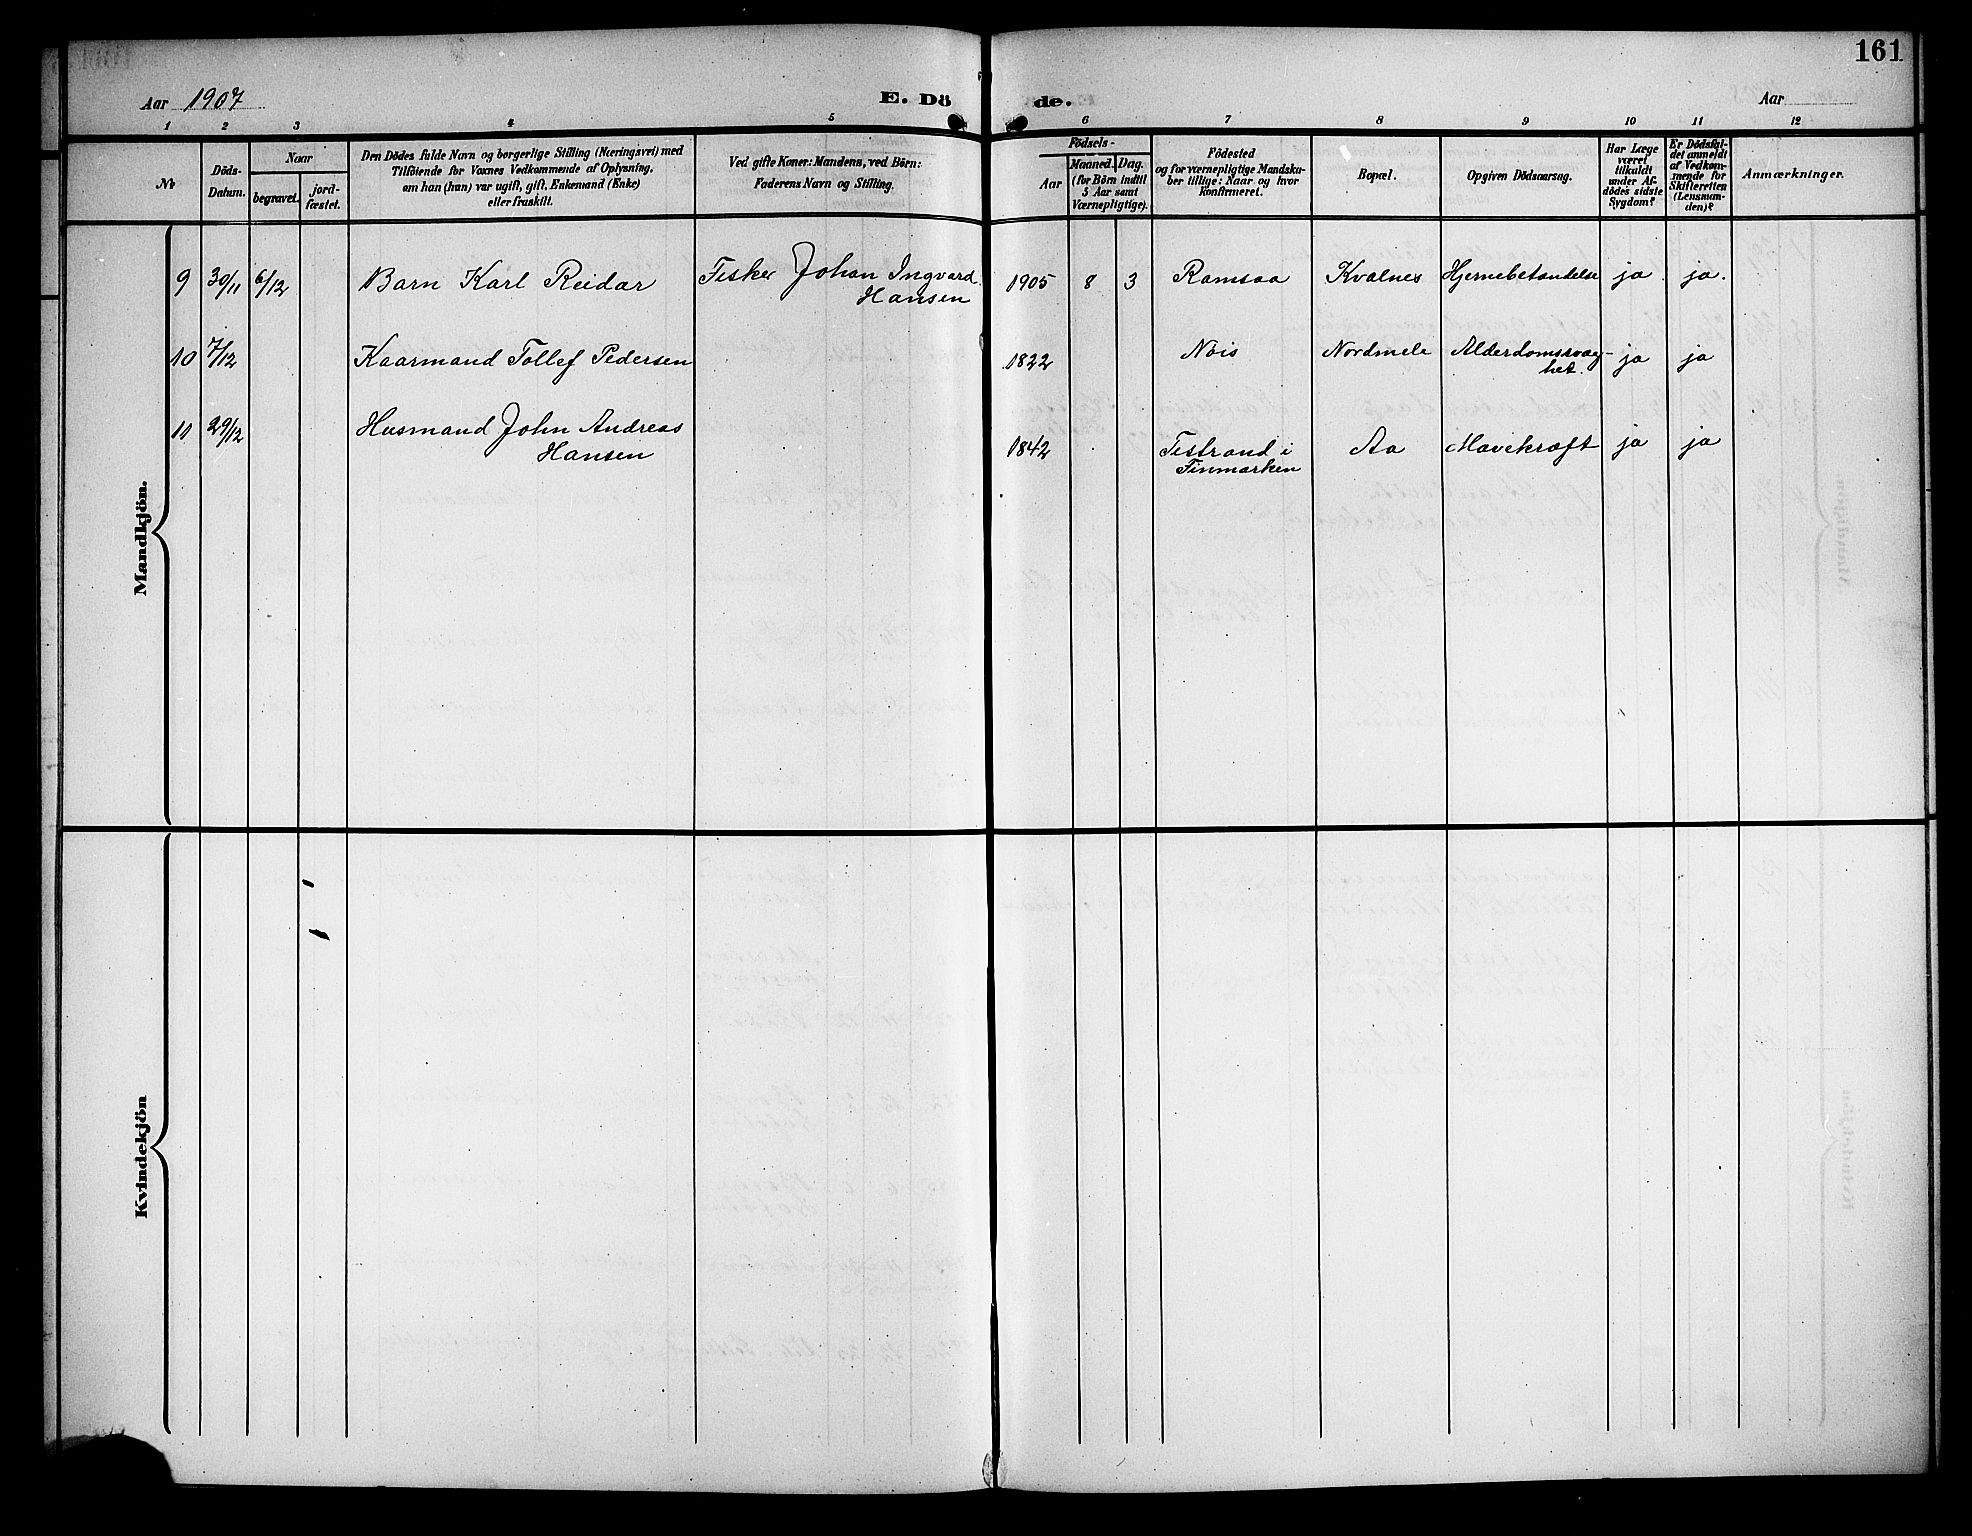 161
Aar 1907
E. Dö
de.
Aar
1 2 3 4 5 6 7 8 9 10 11 12
No
Döds-
Datum.
Naar
begravet.
jord-
fæstet.
Den Dödes fulde Navn og borgerlige Stilling (Næringsvei) med
Tilföiende for Voxnes Vedkommende af Oplysning,
om han (hun) var ugift, gift, Enkemand (Enke)
eller fraskilt.
Ved gifte Koner: Mandens, ved Börn:
Faderens Navn og Stilling.
Födsels-
Aar
Maaned. Dag.
(for Börn indtil
5 Aar samt
Værnepligtige).
Födested
og for værnepligtige Mandska-
ber tillige: Naar og hvor
konfirmeret.
Bopæl.
Opgiven Dödsaarsag.
Har Læge
været
tilkaldt
under Af-
dödes sidste
Sygdom?
Er Dödsfal-
det anmeldt
af Vedkom-
mende for
Skifteretten
(Lensman-
den)?
Anmærkninger.
Mandkjön.
9 30/11 6/12 Barn Karl Reidar Fisker Johan Ingvard
Hansen
1905 8 3 Ramsaa Kvalnes Hjernebetændelse ja ja.
10 7/12 Kaarmand Tollef Pedersen 1822 Nois Nordmele Alderdomssvag-
het. ja ja
11 29/12 Husmand John Andreas
Hansen
1842 Tistrand i
Finmarken
Aa Mavekræft ja ja
Kvindekjön